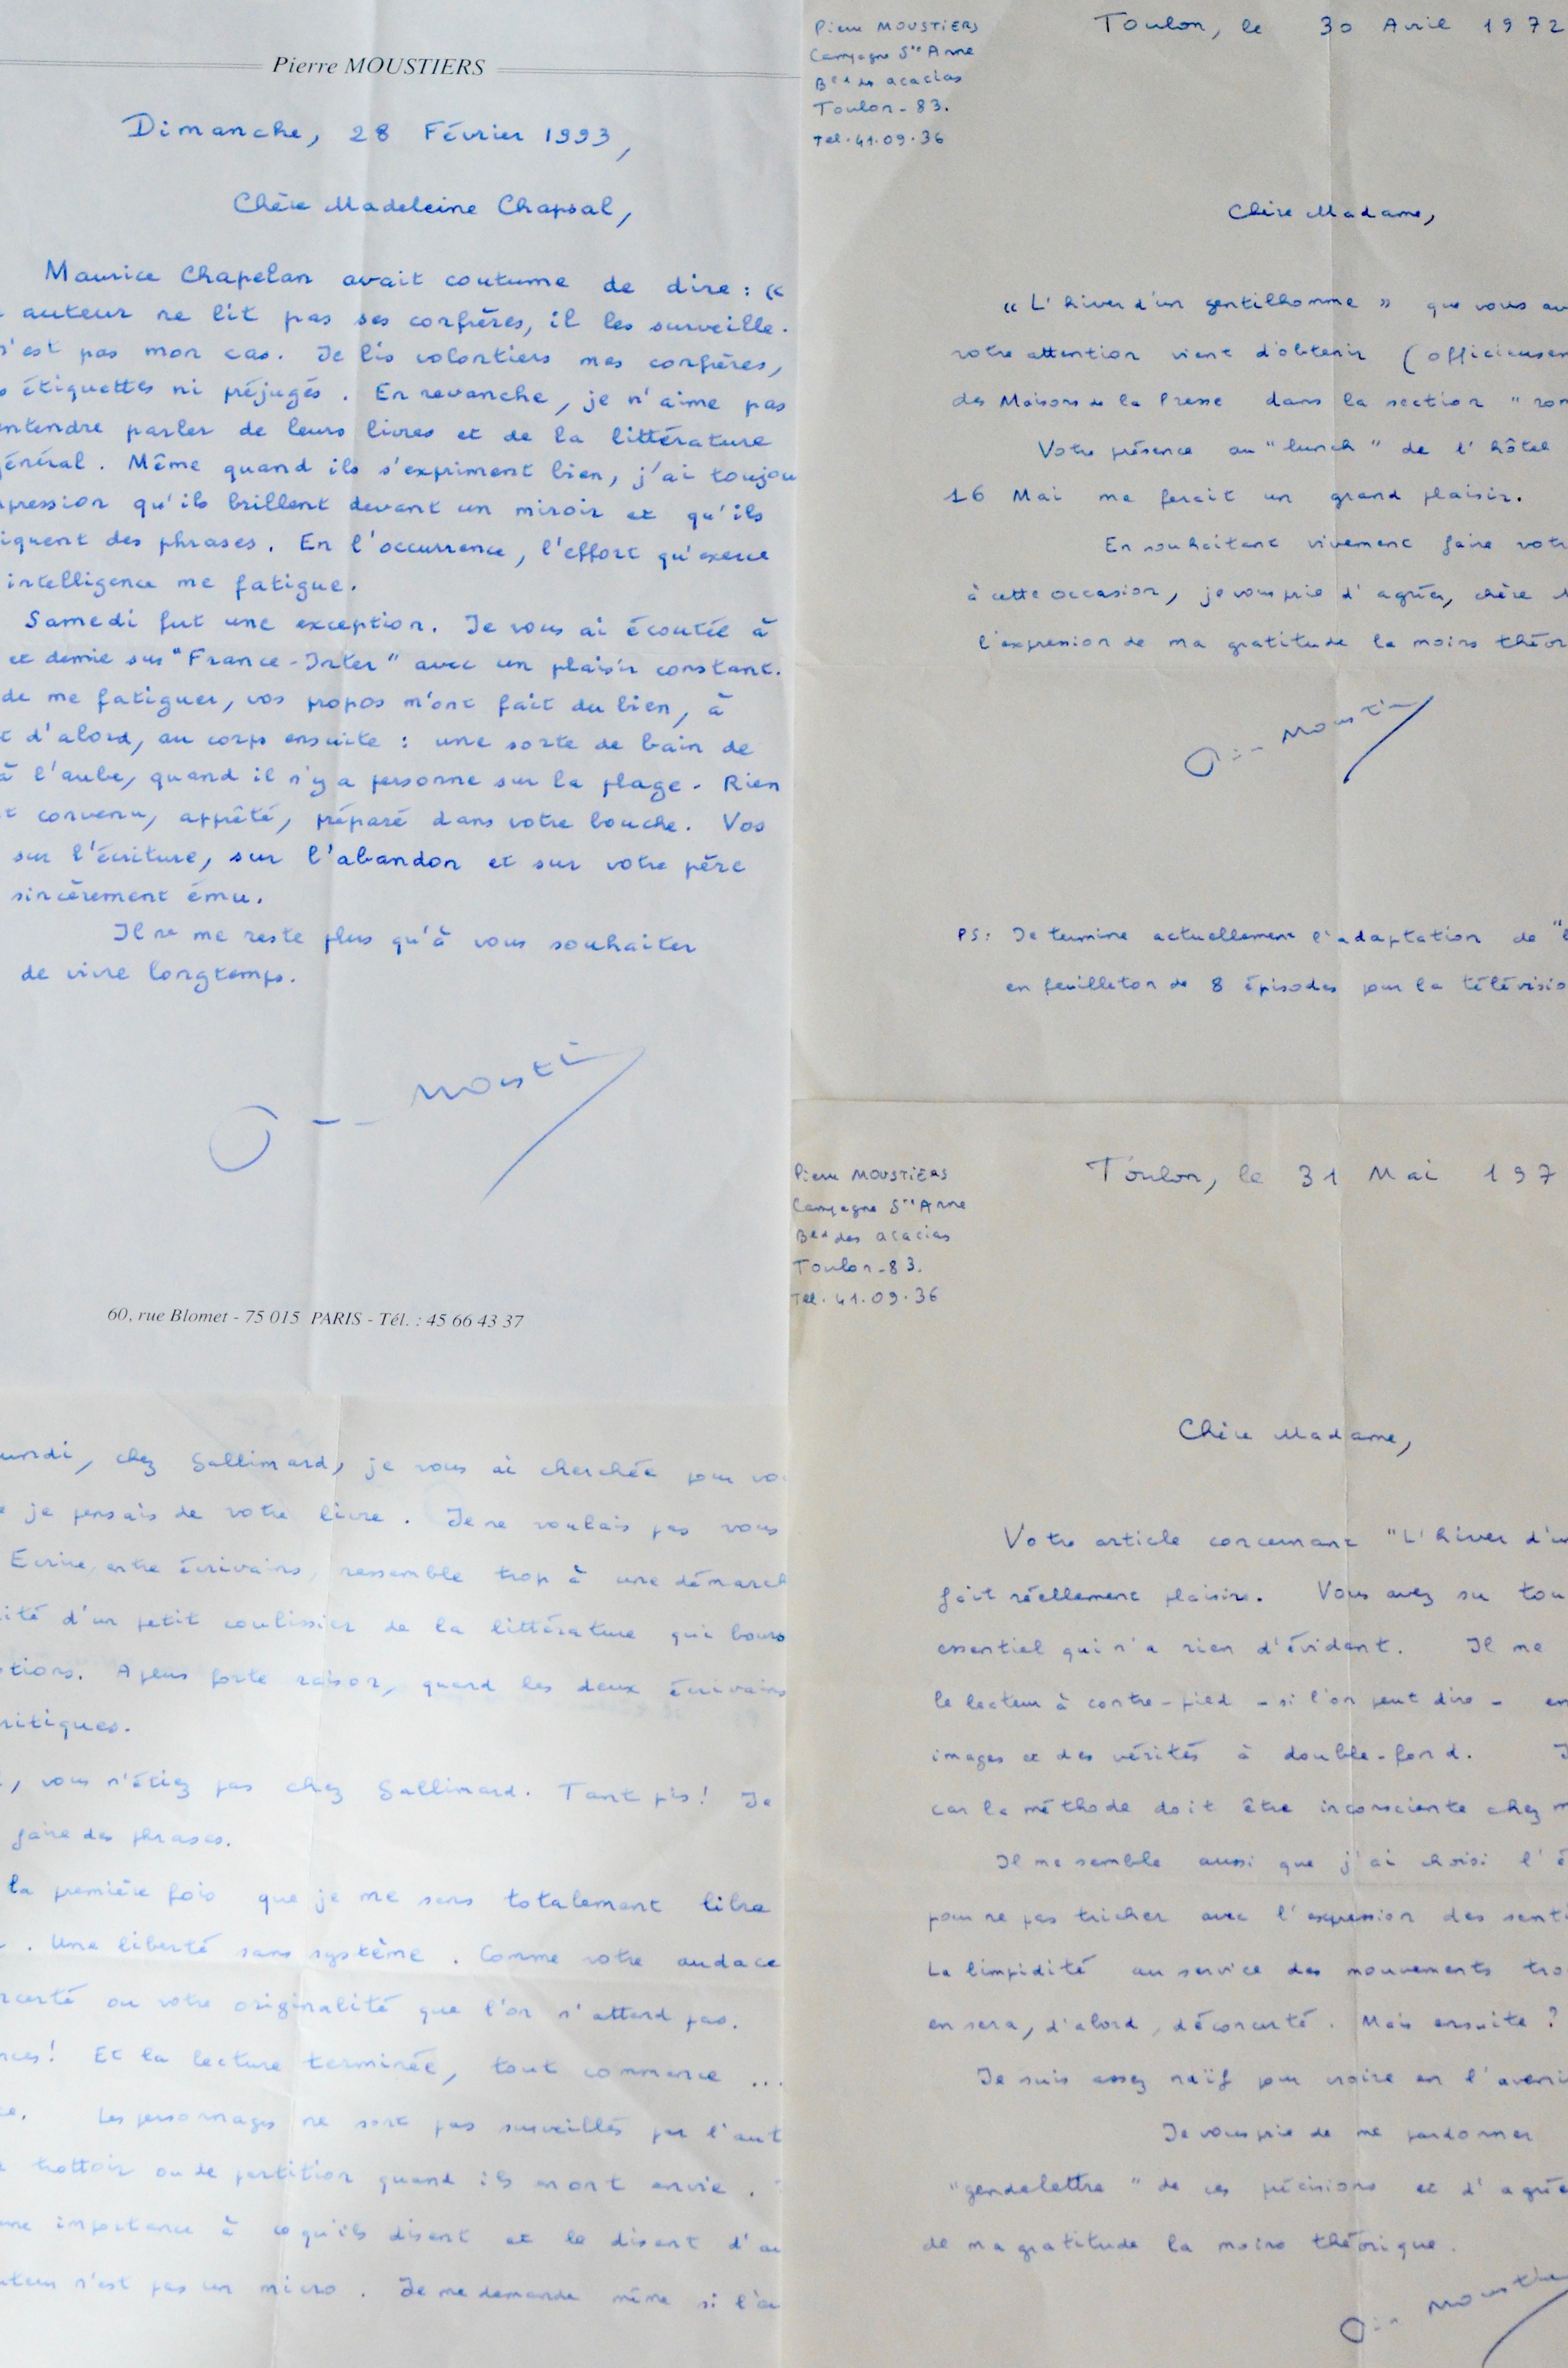 Pierre MOUSTIERS
Dimanche, 28 Février 1993,
Chère Madeleine Chapsal,
Maurice Chapelan avait coutume de dire : «
auteur ne lit pas ses confrères, il les surveille.
n'est pas mon cas. Je lis volontiers mes confrères,
étiquettes ni préjugés. En revanche, je n'aime pas
entendre parler de leurs livres et de la littérature
général. Même quand ils s'expriment bien, j'ai toujou
pression qu'ils brillent devant un miroir et qu'ils
iquent des phrases. En l'occurrence, l'effort qu'exerce
intelligence me fatigue.
Samedi fut une exception. Je vous ai écoutée à
et demie sur "France-Inter" avec un plaisir constant.
de me fatiguer, vos propos m'ont fait du bien, à
t d'abord, au corps ensuite : une sorte de bain de
à l'aube, quand il n'y a personne sur la plage. Rien
t convenu, apprêté, préparé dans votre bouche. Vos
sur l'écriture, sur l'abandon et sur votre père
sincèrement ému.
Il ne me reste plus qu'à vous souhaiter
de vivre longtemps.
Mousti
60, rue Blomet - 75 015 PARIS - Tél. : 45 66 43 37
Pierre MOUSTIERS
Campagne Ste Anne
Bed des acacias
Toulon - 83.
Tel. 41.09.36
Toulon, le 30 Avril 1972
Chère Madame,
« L'hiver d'un gentilhomme » que vous av
votre attention vient d'obtenir (officieusem
des Maisons de la Presse dans la section "rom
Votre présence au "lunch" de l'hôtel
16 Mai me ferait un grand plaisir.
En souhaitant vivement faire votr
à cette occasion, je vous prie d'agréer, chère M
l'expression de ma gratitude la moins théor
Mousti
PS: Je termine actuellement l'adaptation de "
en feuilleton de 8 épisodes pour la télévisio
undi, chez Gallimard, je vous ai cherchée pour vo
e je pensais de votre livre. Je ne voulais pas vous
Ecrire, entre écrivains, ressemble trop à une démarch
ité d'un petit coulissier de la littérature qui
tions. A plus forte raison, quand les deux écrivains
ritiques.
, vous n'étiez pas chez Gallimard. Tant pis! Je
faire des phrases.
la première fois que je me sens totalement libre
. Une liberté sans système. Comme votre audace
certé ou votre originalité que l'on n'attend pas.
nces! Et la lecture terminée, tout commence ...
ce. Les personnages ne sont pas surveillés par l'aut
trottoir ou de partition quand ils en ont envie.
une importance à ce qu'ils disent et le disent d'au
uteur n'est pas un micro. Je me demande même si l'au
Pierre MOUSTIERS
Campagne Ste Anne
Bed des acacias
Toulon - 83.
Tel. 41.09.36
Toulon, le 31 Mai 197
Chère Madame,
Votre article concernant "L'hiver d'un
fait réellement plaisir. Vous avez su tou
essentiel qui n'a rien d'évident. Il me
le lecteur à contre-pied - si l'on peut dire - en
images et des vérités à double-fond. J
car la méthode doit être inconsciente chez m
Il me semble aussi que j'ai choisi l'é
pour ne pas tricher avec l'expression des senti
La limpidité au service des mouvements tro
en sera, d'abord, déconcerté. Mais ensuite ?
Je suis assez naïf pour croire en l'aveni
Je vous prie de me pardonner
"gendelettre" de ces précisions et d'agrée
de ma gratitude la moins théorique.
Moustie